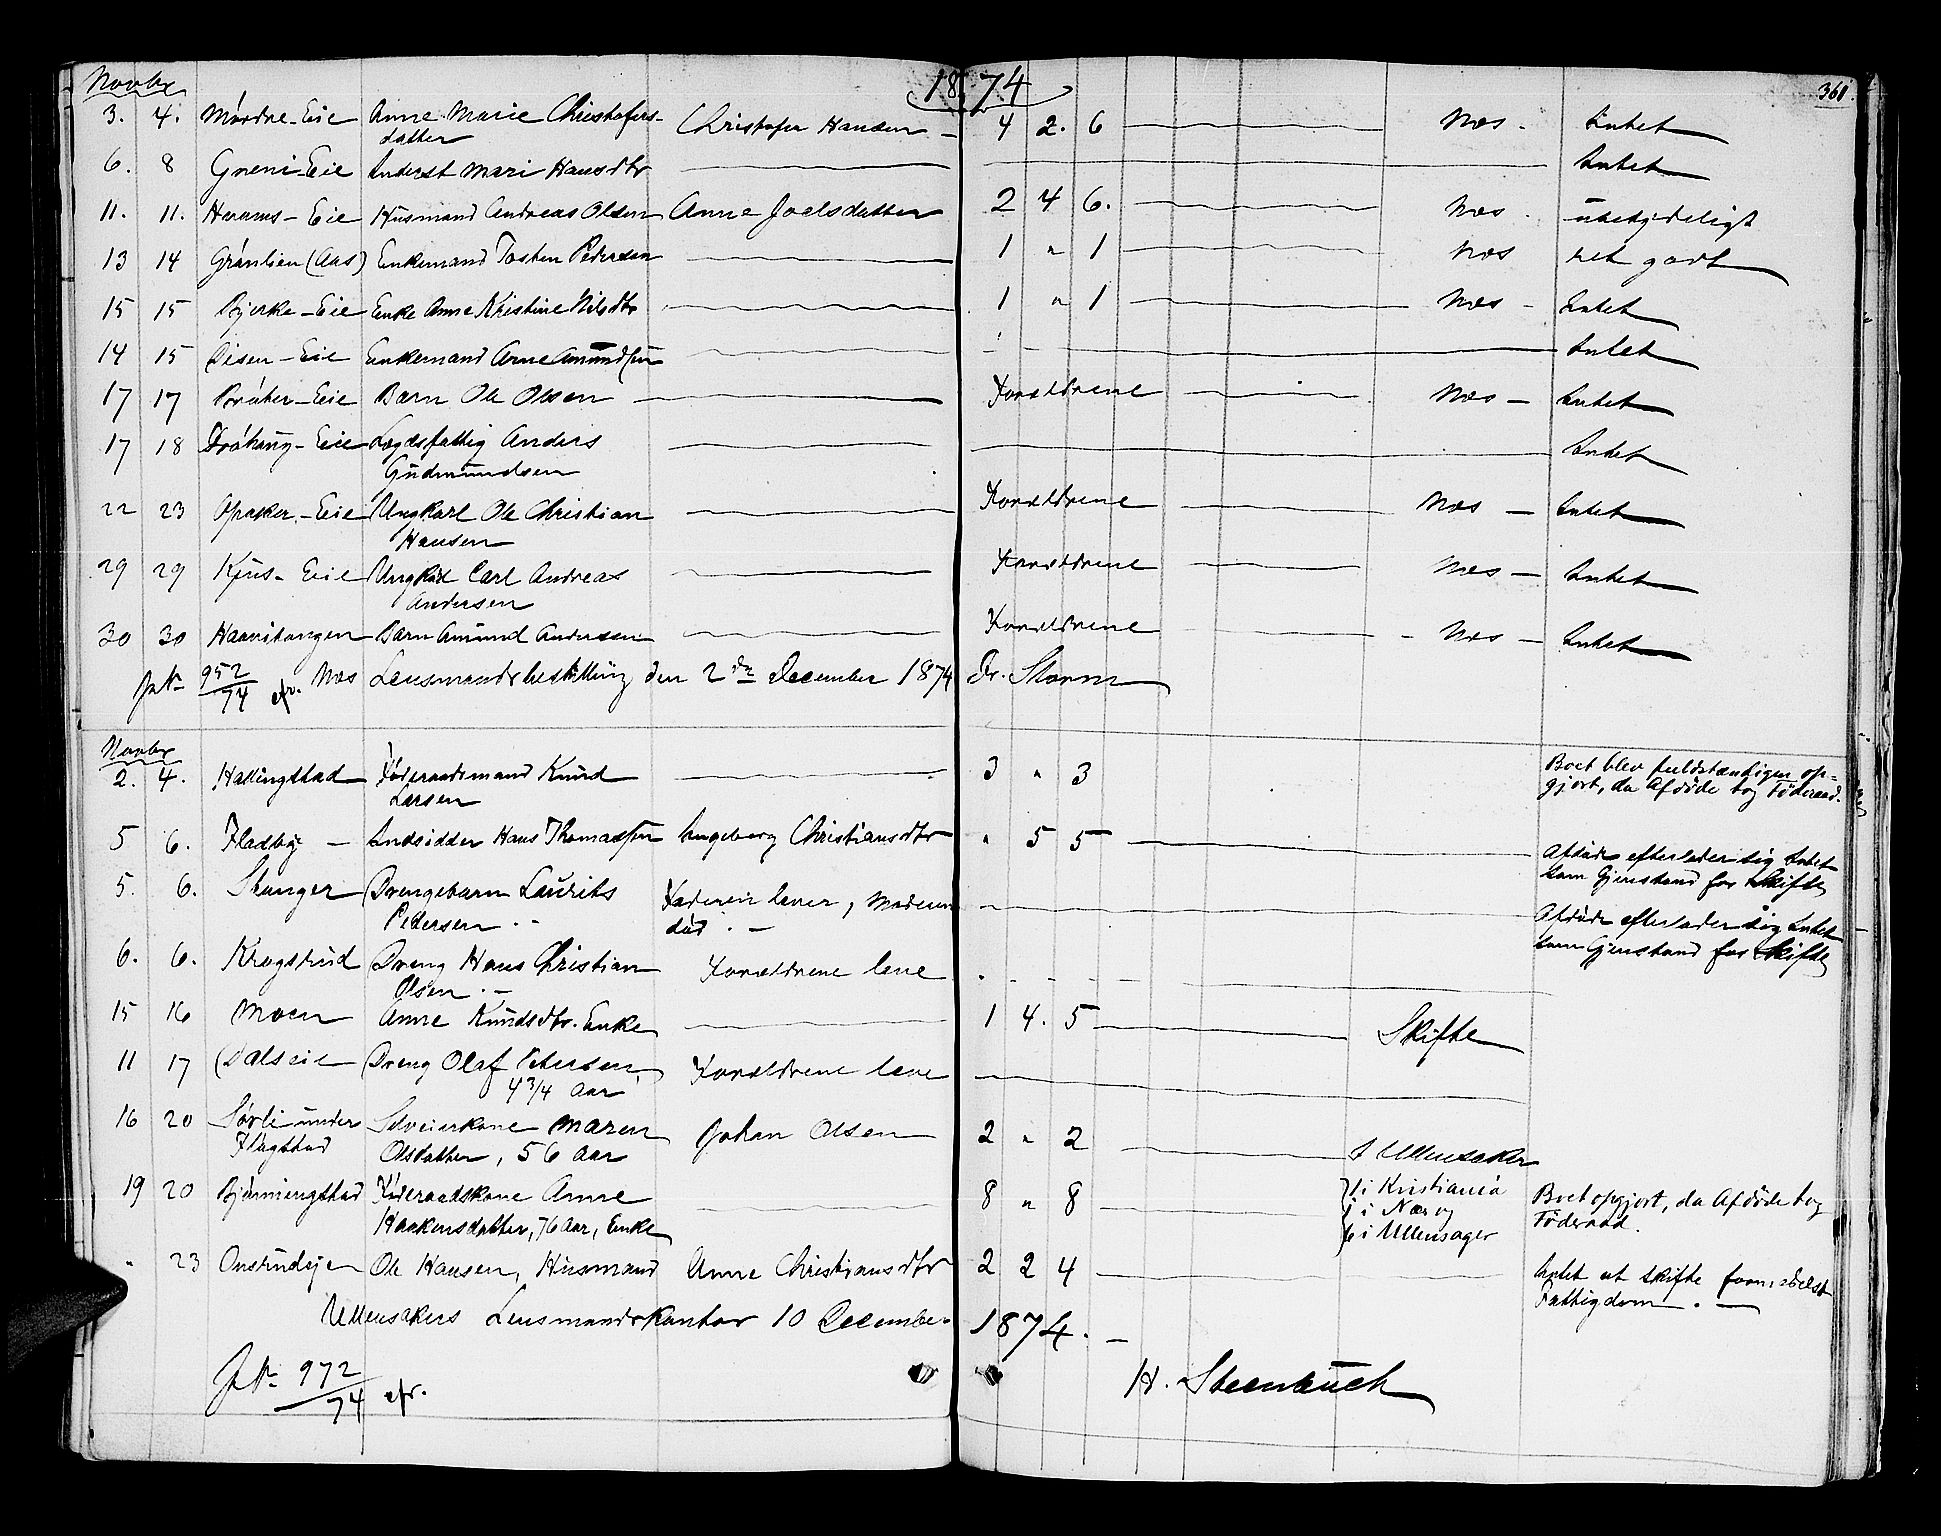 1874
361
Novbr
3. 4. Mårdre-Eie Anne Marie Christofers- Christofer Hansen 4 2. 6 Næs - Intet
datter
6. 8 Greni-Eie Inderst Mari Hansdtr Intet
11. 11. Herams-Eie Husmand Andreas Olsen Anne Joelsdatter 2 4 6. Næs - ubetydeligt
13 14 Grønlien (Aas) Enkemand Tosten Pedersen 1 " 1 Næs ret godt
15 15 Bjerke-Eie Enke Anne Kristine Nilsdtr 1 " 1 Næs - Intet
14 15 Disen-Eie Enkemand Arne Amundsen Intet
17 17 Bråter-Eie Barn Ole Olsen Forældrene Næs - Intet
17 18 -Eie Lægdsfattig Anders Intet
Gudmundsen
22 23 Opaker-Eie Ungkarl Ole Christian Forældrene Næs - Intet
Hansen
29 29 Kjus-Eie Carl Andreas Forældrene Næs - Intet
Andersen
30 30 Haavitangen Barn Amund Andersen Forældrene - Næs - Intet
952/74 Næs Lensmandsbestilling den 2den December 1874 Storm
Novbr
2. 4. Hallingstad Føderaadsmand Knud 3 " 3 Boet blev fuldstændigen op-
Larsen gjort, da Afdøde tog Føderaad.
5 6. Fladby - Indsidder Hans Thomassen Ingeborg Christiansdtr " 5 5 Afdøde efterlader sig Intet
som Gjenstand for Skifte
5. 6. Stenger Drengebarn Laurits Faderen lever, Moderen
Pedersen. - død. - Afdøde efterlader sig Intet
som Gjenstand for Skifte
6. 6. Krogsrud Dreng Hans Christian Forældrene leve
Olsen. -
15 16 Moen Anne Knudsdtr. Enke 1 4. 5 Skifte
11 17 Dalseie Dreng Olaf Petersen, Forældrene leve
4 3/4 Aar
16 20 Sørli under Selveierkone Maren Johan Olsen 2 " 2 I Ullensaker
Flagstad Olsdatter, 56 Aar
19 20 Føderaadskone Anne 8 " 8 1 i Kristiania Boet opgjort, da Afdøde tog
Haakensdatter, 76 Aar, Enke 1 i Næs og Føderaad.
6 i Ullensager
" 23 Onsrudeje Ole Hansen, Husmand Anne Christiansdtr 2 2 4 Intet at skifte formedelst
Fattigdom. -
Ullensakers Lensmandskontor 10 December 1874. -
972/74 H. Steenbuch